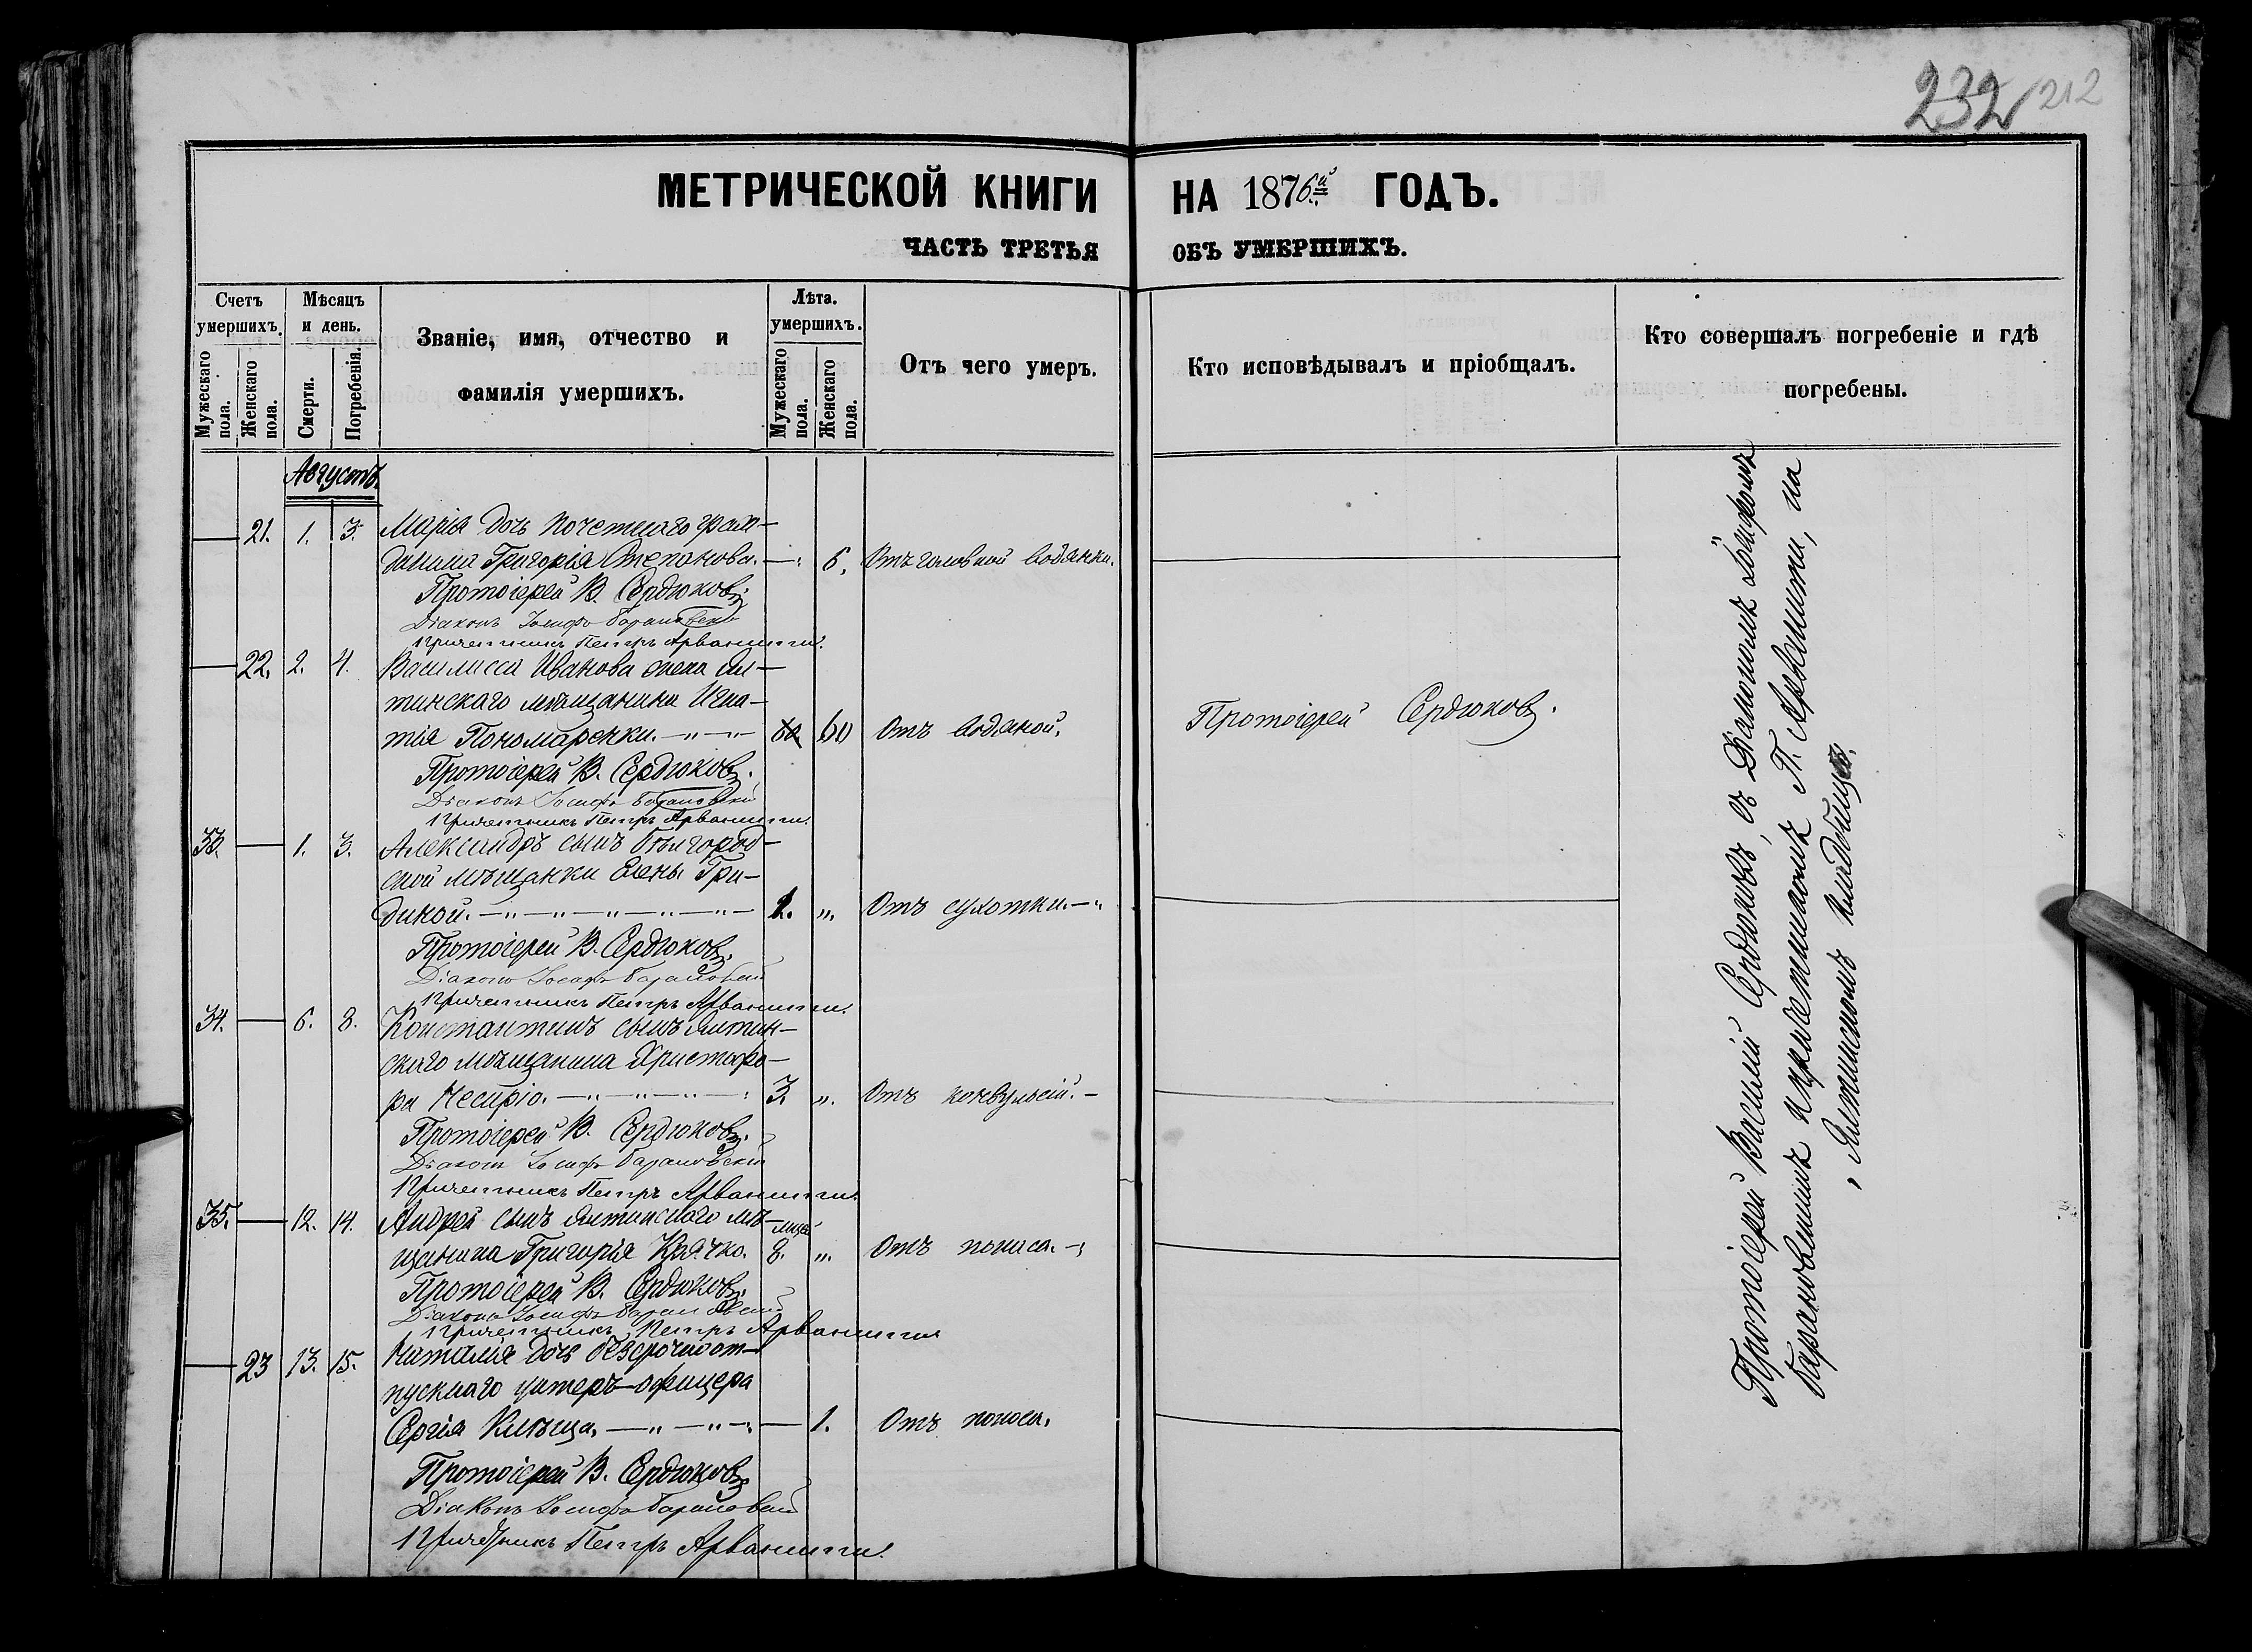 232 212
МЕТРИЧЕСКОЙ КНИГИ НА 1876й ГОДЪ.
ЧАСТЬ ТРЕТЬЯ ОБЪ УМЕРШИХЪ.
Счетъ умершихъ.
Мужескаго пола.
Женскаго пола.
Мѣсяцъ и день.
Смерти.
Погребенія.
Званіе, имя, отчество и
фамилія умершихъ.
Лѣта умершихъ.
Мужескаго пола.
Женскаго пола.
Отъ чего умеръ.
Кто исповѣдывалъ и пріобщалъ.
Кто совершалъ погребеніе и гдѣ
погребены.
Августъ.
21. 1. 3. Марія дочь почетнаго граж-
данина Григорія Степанова. 6. Отъ головной водянки.
Протоіерей В. Сердюковъ.
Діаконъ Іосифъ Барановскій
Причетникъ Петръ Арванити.
22. 2. 4. Василисса Иванова жена Ял-
тинскаго мѣщанина Игна-
тія Пономаренки. 60 60 Отъ водяной. Протоіерей Сердюковъ.
Протоіерей В. Сердюковъ.
Діаконъ Іосифъ Барановскій
Причетникъ Петръ Арванити.
33. 1. 3. Александръ сынъ Бѣлгород-
ской мѣщанки Елены Гри-
дикой. 1. „ Отъ сухотки.
Протоіерей В. Сердюковъ.
Діаконъ Іосифъ Барановскій
Причетникъ Петръ Арванити.
34. 6. 8. Константинъ сынъ Ялтин-
скаго мѣщанина Христофо-
ра 3. „ Отъ конвульсій.
Протоіерей В. Сердюковъ.
Діаконъ Іосифъ Барановскій
Причетникъ Петръ Арванити.
35. 12. 14. Андрей сынъ Ялтинскаго мѣ-
щанина Григорія Клячко. 8. „ Отъ поноса.
Протоіерей В. Сердюковъ.
Діаконъ Іосифъ Барановскій
Причетникъ Петръ Арванити
23 13. 15. Наталія дочь безсрочноот-
пускнаго унтеръ-офицера
Сергія 1. Отъ поноса.
Протоіерей В. Сердюковъ
Діаконъ Іосифъ Барановскій
Причетникъ Петръ Арванити.
Протоіерей Василій Сердюковъ, съ Діакономъ Іосифомъ
Барановскимъ и причетникомъ П. Арванити, на
Ялтинскомъ кладбищѣ.